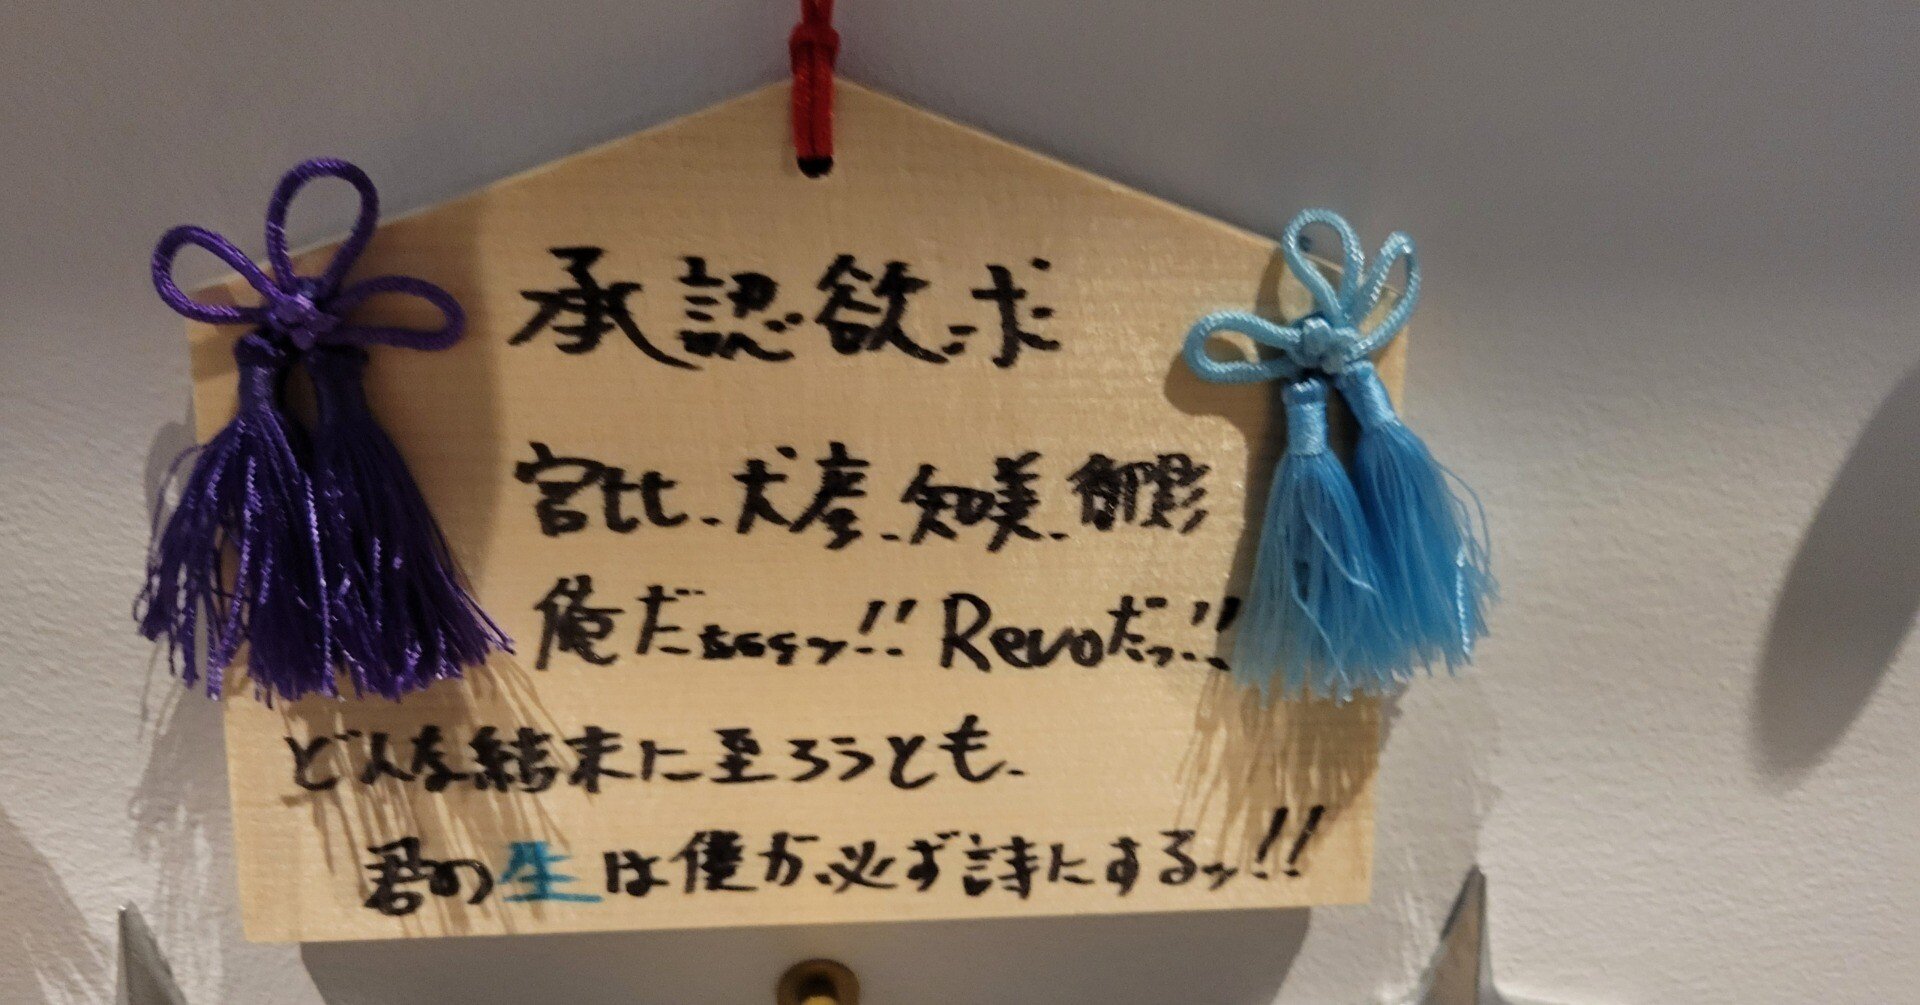 承認欲求
宮比、犬彦、知美、御影
俺だぁぁぁぁッ!! Revoだッ!!
どんな結末に至ろうとも、
君の生は僕が必ず詩にするッ!!